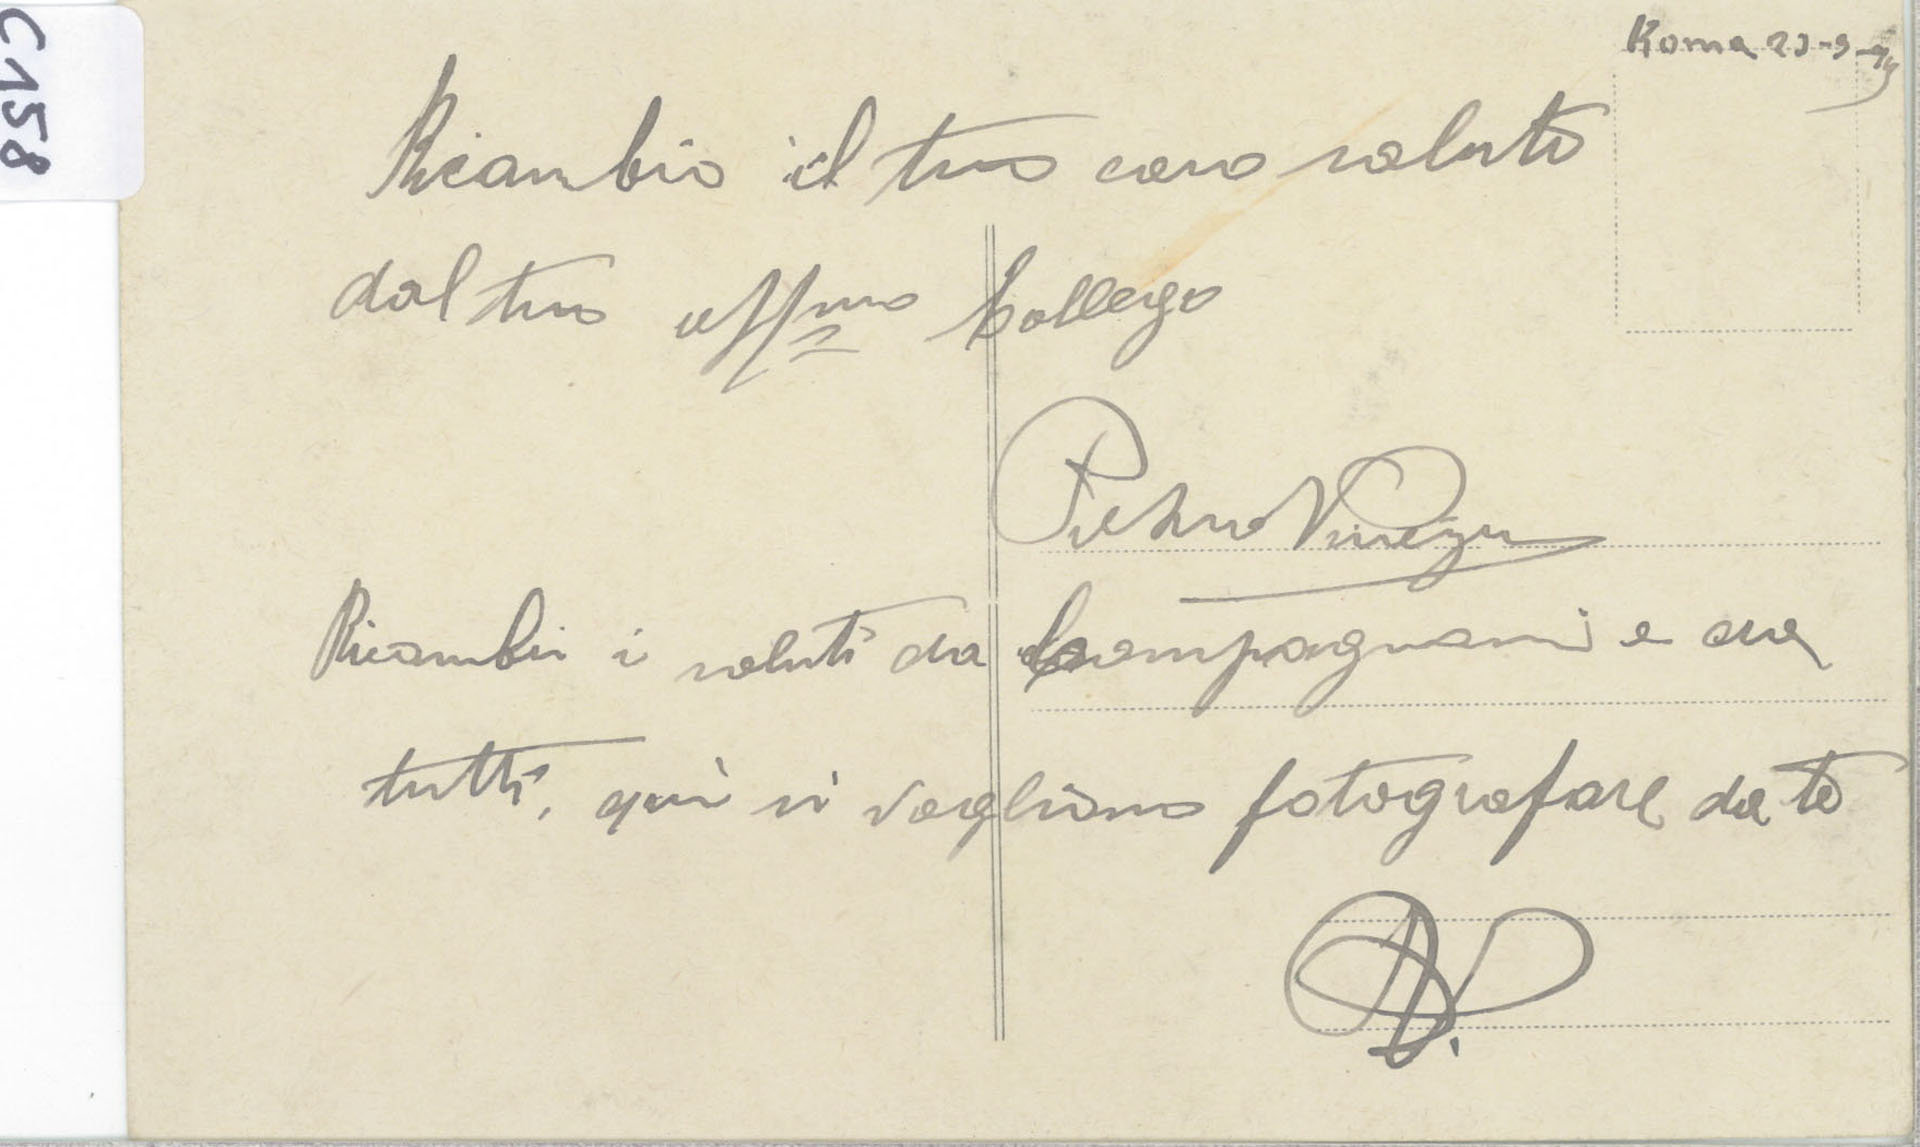 C158
Roma 23-9-
Ricambio il tuo caro saluto
dal tuo aff.mo Collega
Pietro
Ricambio i saluti da Compagnoni e da
tutti, qui si vogliono fotografare da te